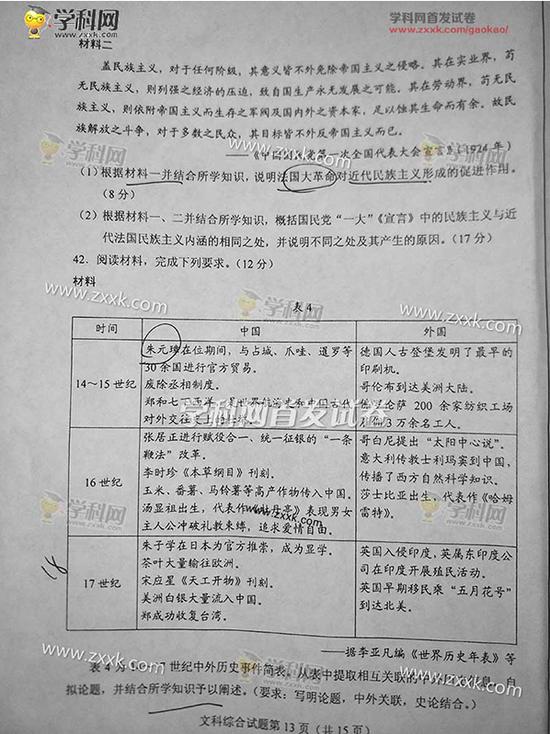 学科网
www.zxxk.com
学科网首发试卷
www.zxxk.com/gaokao/
材料二
盖民族主义，对于任何阶级，其意义皆不外免除帝国主义之侵略。其在实业界，苟
无民族主义，则列强之经济的压迫，致自国生产永无发展之可能。其在劳动界，苟无民
族主义，则依附帝国主义而生存之军阀及国内外之资本家，足以蚀其生命而有余。故民
族解放之斗争，对于多数之民众，其目标皆不外反帝国主义而已。
——《中国国民党第一次全国代表大会宣言》（1924年）
（1）根据材料一并结合所学知识，说明法国大革命对近代民族主义形成的促进作用。
（8分）
（2）根据材料一、二并结合所学知识，概括国民党“一大”《宣言》中的民族主义与近
代法国民族主义内涵的相同之处，并说明不同之处及其产生的原因。（17分）
42. 阅读材料，完成下列要求。（12分）
材料
表4
时间 中国 外国
14～15世纪
朱元璋在位期间，与占城、爪哇、暹罗等
30余国进行官方贸易。
废除丞相制度。
郑和七下西洋，是世界航海史和中国古代
对外交往史上的壮举。
德国人古登堡发明了最早的
印刷机。
哥伦布到达美洲大陆。
佛罗伦萨 200 余家纺织工场
雇佣3万余名工人。
16世纪
张居正进行赋役合一、统一征银的“一条
鞭法”改革。
李时珍《本草纲目》刊刻。
玉米、番薯、马铃薯等高产作物传入中国。
汤显祖出生，代表作《牡丹亭》表现男女
主人公冲破礼教束缚，追求爱情自由。
哥白尼提出“太阳中心说”。
意大利传教士利玛窦到中国，
传播了西方自然科学知识。
莎士比亚出生，代表作《哈姆
雷特》。
17世纪
朱子学在日本为官方推崇，成为显学。
茶叶大量输往欧洲。
宋应星《天工开物》刊刻。
美洲白银大量流入中国。
郑成功收复台湾。
英国入侵印度，英属东印度公
司在印度开展殖民活动。
英国早期移民乘“五月花号”
到达北美。
——据李亚凡编《世界历史年表》等
表4为 世纪中外历史事件简表。从表中提取相互关联的中外历史信息，自
拟论题，并结合所学知识予以阐述。（要求：写明论题，中外关联，史论结合。）
文科综合试题第13页（共15页）